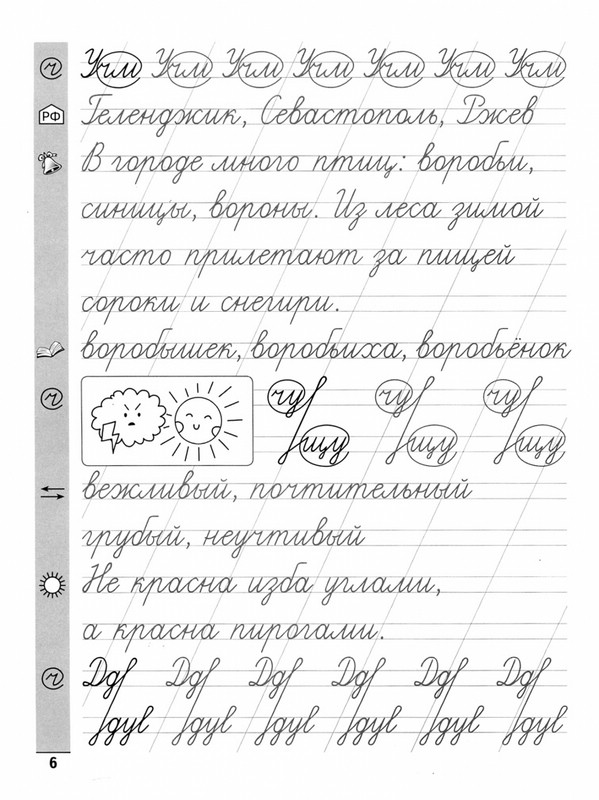 Учм Учм Учм Учм Учм Учм Учм
РФ
Геленджик, Севастополь, Ржев
В городе много птиц: воробьи,
синицы, вороны. Из леса зимой
часто прилетают за пищей
сороки и снегири.
воробышек, воробьиха, воробьёнок
чу чу чу
щу щу щу
вежливый, почтительный
грубый, неучтивый
Не красна изба углами,
а красна пирогами.
6